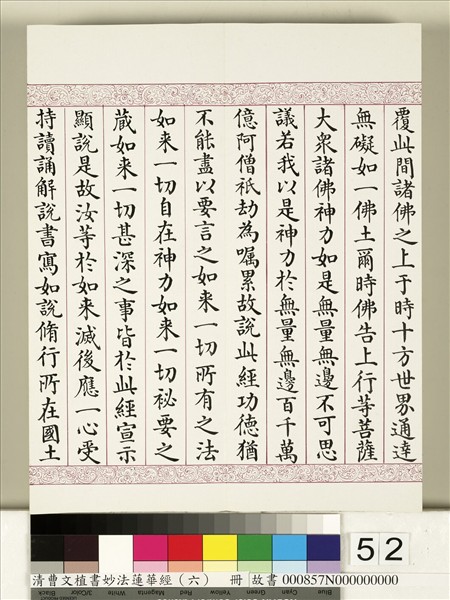 覆此間諸佛之上于時十方世界通達
無礙如一佛土爾時佛告上行等菩薩
大衆諸佛神力如是無量無邊不可思
議若我以是神力於無量無邊百千萬
億阿僧祇劫為囑累故說此經功德猶
不能盡以要言之如来一切所有之法
如来一切自在神力如来一切祕要之
蔵如来一切甚深之事皆於此經宣示
顯說是故汝等於如来滅後應一心受
持讀誦解說書寫如說脩行所在國土
52
Black
3/Color
White
Magenta
Red
Yellow
Green
Cyan
Blue
清曹文植書妙法蓮華經（六） 冊 故書 000857N000000000